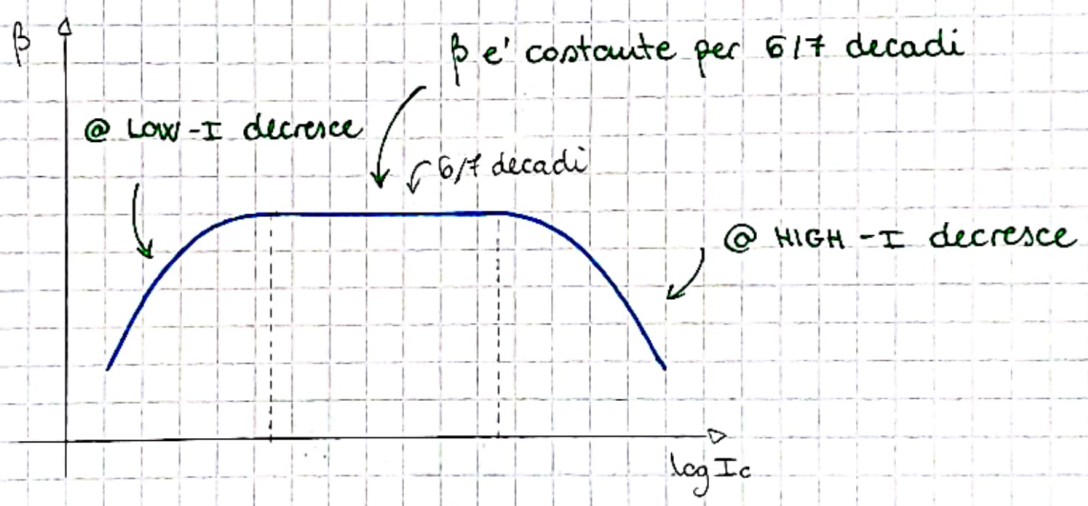 β
β e' costante per 6/7 decadi
@ LOW-I decresce
6/7 decadi
@ HIGH-I decresce
log Ic